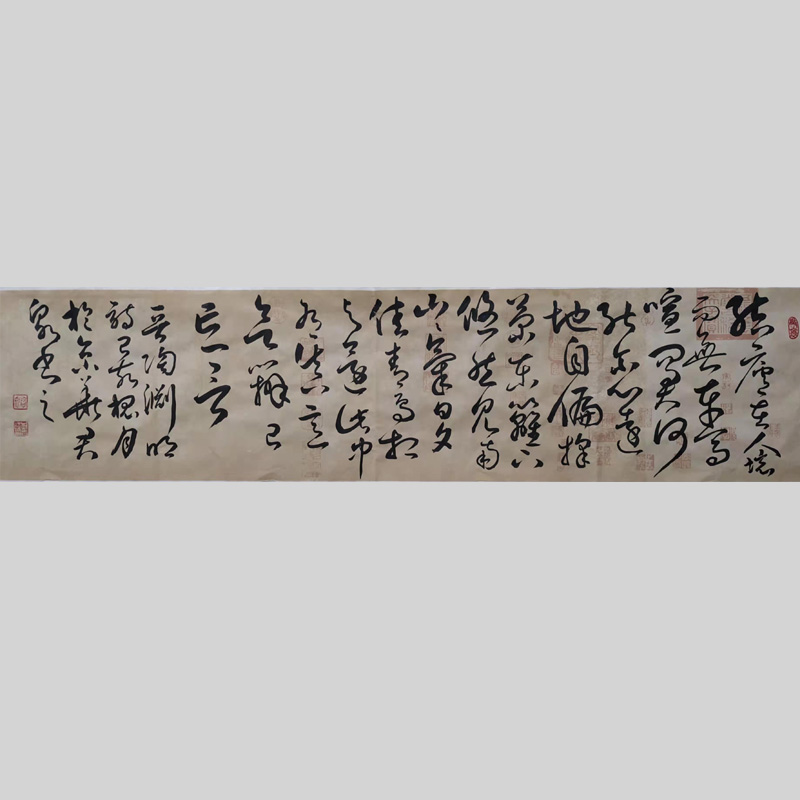 結廬在人境
而無車馬
喧問君何
能爾心遠
地自偏採
菊東籬下
悠然見南
山〻氣日夕
佳飛鳥相
與還此中
有真意
欲辨已
忘言
晉陶淵明
詩己亥槐月
於京華君
泉書之